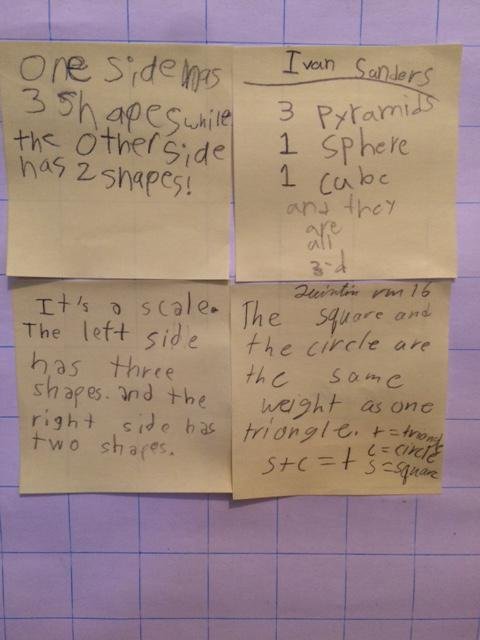 One side has
3 shapes while
the other side
has 2 shapes!
Ivan Sanders
3 Pyramids
1 sphere
1 cube
and they
are
all
3-d
It's a scale.
The left side
has three
shapes. and the
right side has
two shapes.
Quintin rm 16
The square and
the circle are
the same
weight as one
triangle.
t=triangl
c=circle
s+c=t s=square